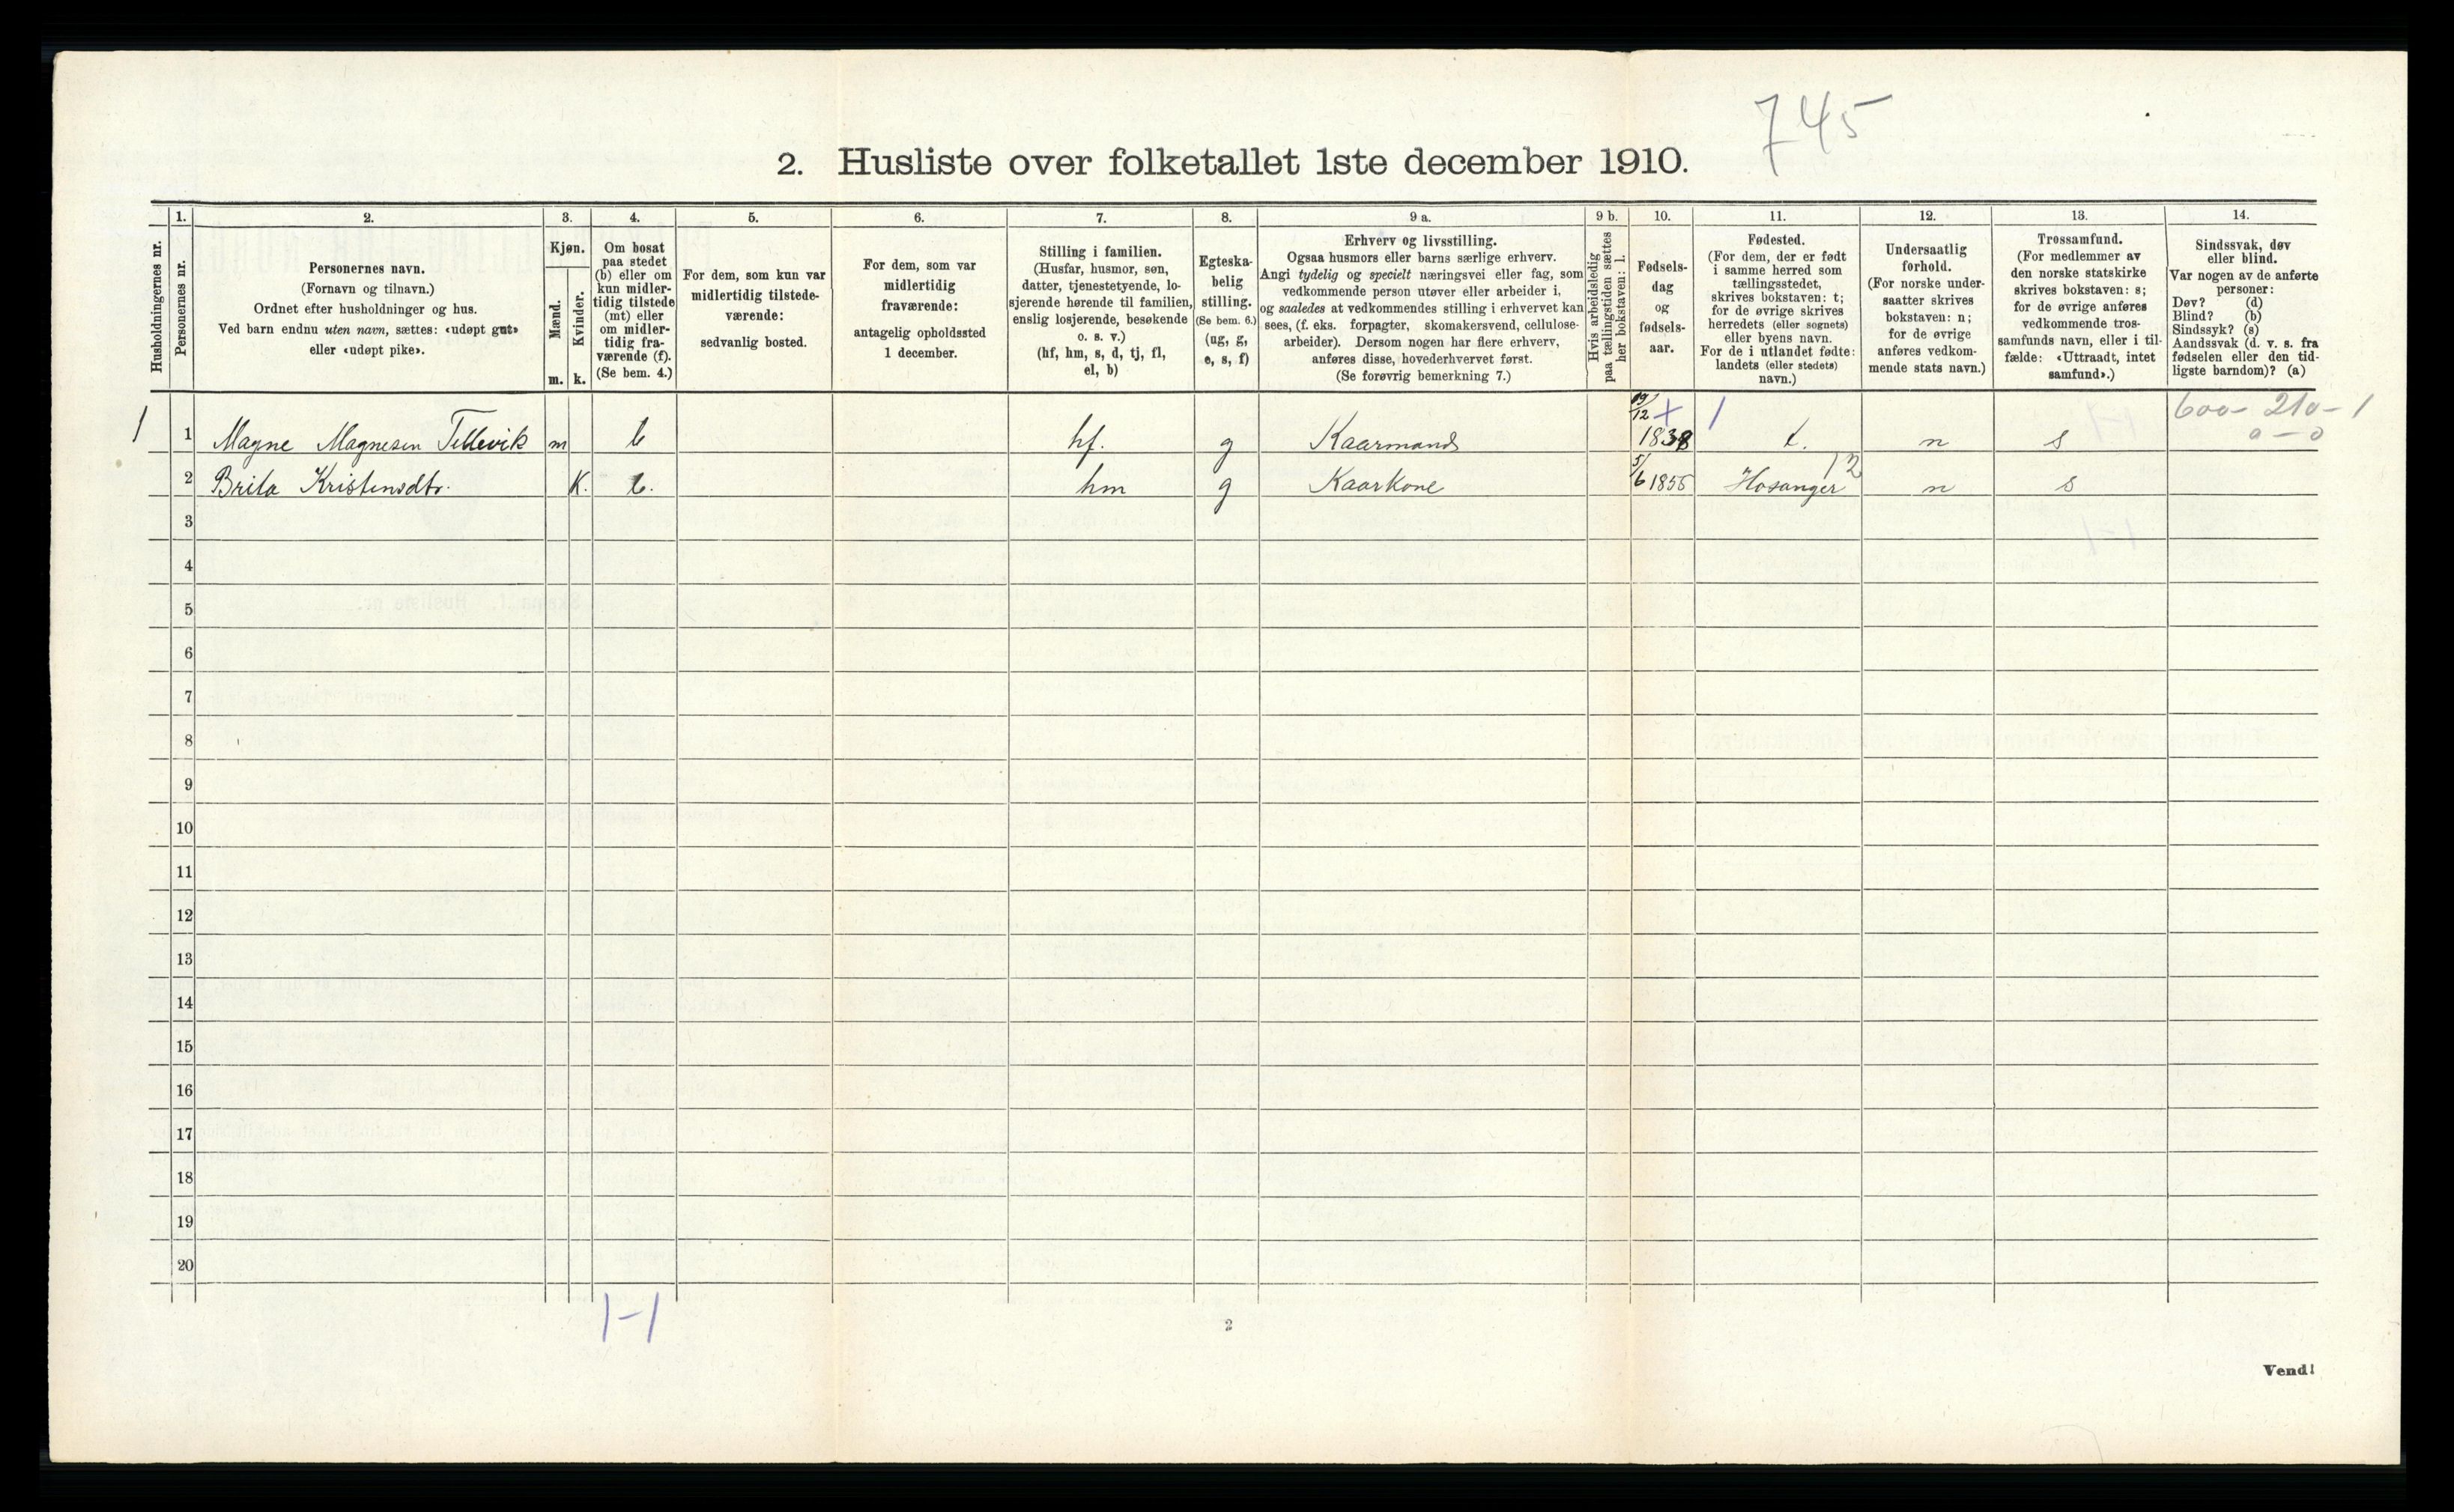 745
2. Husliste over folketallet 1ste december 1910.
Husholdningernes nr.
1.
Personernes nr.
2.
Personernes navn.
(Fornavn og tilnavn.)
Ordnet efter husholdninger og hus.
Ved barn endnu uten navn, sættes: «udøpt gut»
eller «udøpt pike».
3.
Kjøn.
Mænd.
Kvinder.
m. k.
4.
Om bosat
paa stedet
(b) eller om
kun midler-
tidig tilstede
(mt) eller
om midler-
tidig fra-
værende (f).
(Se bem. 4.)
5.
For dem, som kun var
midlertidig tilstede-
værende:
sedvanlig bosted.
6.
For dem, som var
midlertidig
fraværende:
antagelig opholdssted
1 december.
7.
Stilling i familien.
(Husfar, husmor, søn,
datter, tjenestetyende, lo-
sjerende hørende til familien,
enslig losjerende, besøkende
o. s. v.)
(hf, hm, s, d, tj, fl,
el, b)
8.
Egteska-
belig
stilling.
(Se bem. 6.)
(ug, g,
e, s, f)
9 a.
Erhverv og livsstilling.
Ogsaa husmors eller barns særlige erhverv.
Angi tydelig og specielt næringsvei eller fag, som
vedkommende person utøver eller arbeider i,
og saaledes at vedkommendes stilling i erhvervet kan
sees, (f. eks. forpagter, skomakersvend, cellulose-
arbeider). Dersom nogen har flere erhverv,
anføres disse, hovederhvervet først.
(Se forøvrig bemerkning 7.)
9 b.
Hvis arbeidsledig
paa tællingstiden sættes
her bokstaven: l.
10.
Fødsels-
dag
og
fødsels-
aar.
11.
Fødested.
(For dem, der er født
i samme herred som
tællingsstedet,
skrives bokstaven: t;
for de øvrige skrives
herredets (eller sognets)
eller byens navn.
For de i utlandet fødte:
landets (eller stedets)
navn.)
12.
Undersaatlig
forhold.
(For norske under-
saatter skrives
bokstaven: n;
for de øvrige
anføres vedkom-
mende stats navn.)
13.
Trossamfund.
(For medlemmer av
den norske statskirke
skrives bokstaven: s;
for de øvrige anføres
vedkommende tros-
samfunds navn, eller i til-
fælde: «Uttraadt, intet
samfund».)
14.
Sindssvak, døv
eller blind.
Var nogen av de anførte
personer:
Døv? (d)
Blind? (b)
Sindssyk? (s)
Aandssvak (d. v. s. fra
fødselen eller den tid-
ligste barndom)? (a)
1 1 Magne Magnesen Tellevik m b hf. g Kaarmand 19/12 1838 + 1 t. n s 600- 210- 1
0 - 0
2 Brita Kristensdtr. K. b. hm g Kaarkone 5/6 1855 Hosanger 12 n s
3
4
5
6
7
8
9
10
11
12
13
14
15
16
17
18
19
20
1-1
2
Vend!